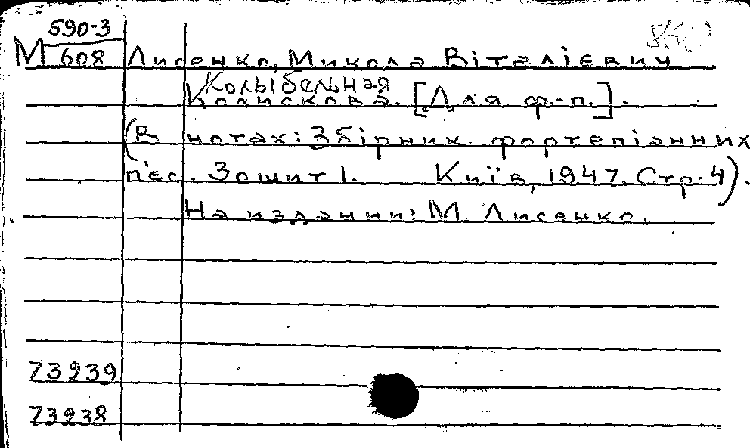 590-3
М 608 Лисенко, Микола Віталієвич
Колыбельная
Колискова. [Для ф-п.].
(В нотах: Збірник фортепіанних
п'єс. Зошит 1. Київ, 1947. Стр. 4).
На издании: М. Лисенко.
73239
73238